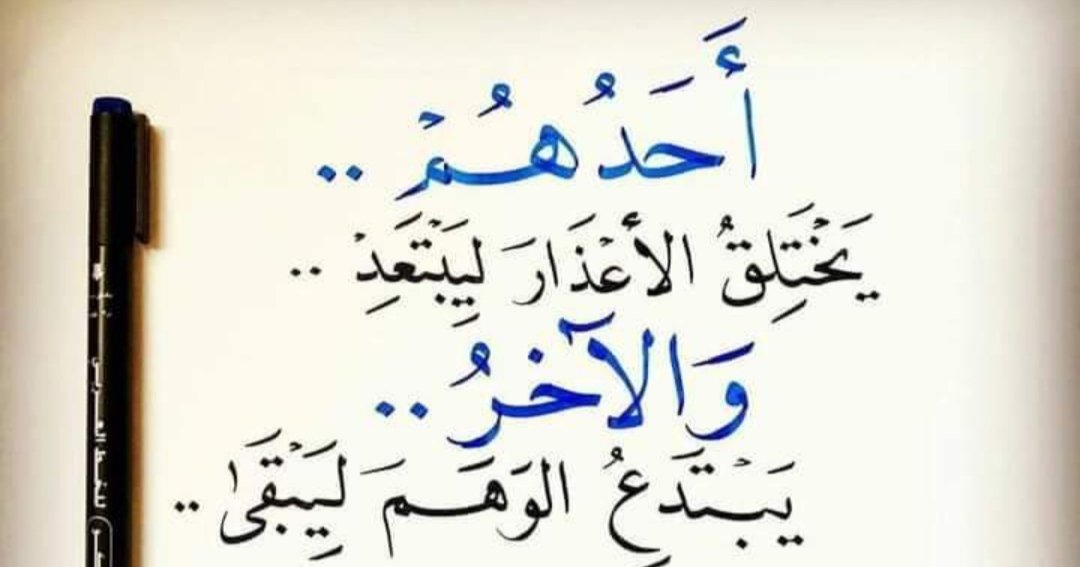 أَحَدُهُمْ ..
يَخْتَلِقُ الأَعْذَارَ لِيَبْتَعَدِْ ..
وَالآخَرُ ..
يَبْتَدَعُِ الوَهَمَ لِيَبْقَىٰ ..
للخط العربي